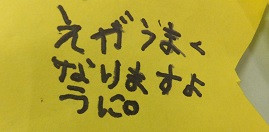 えがうまく
なりますよ
うに。